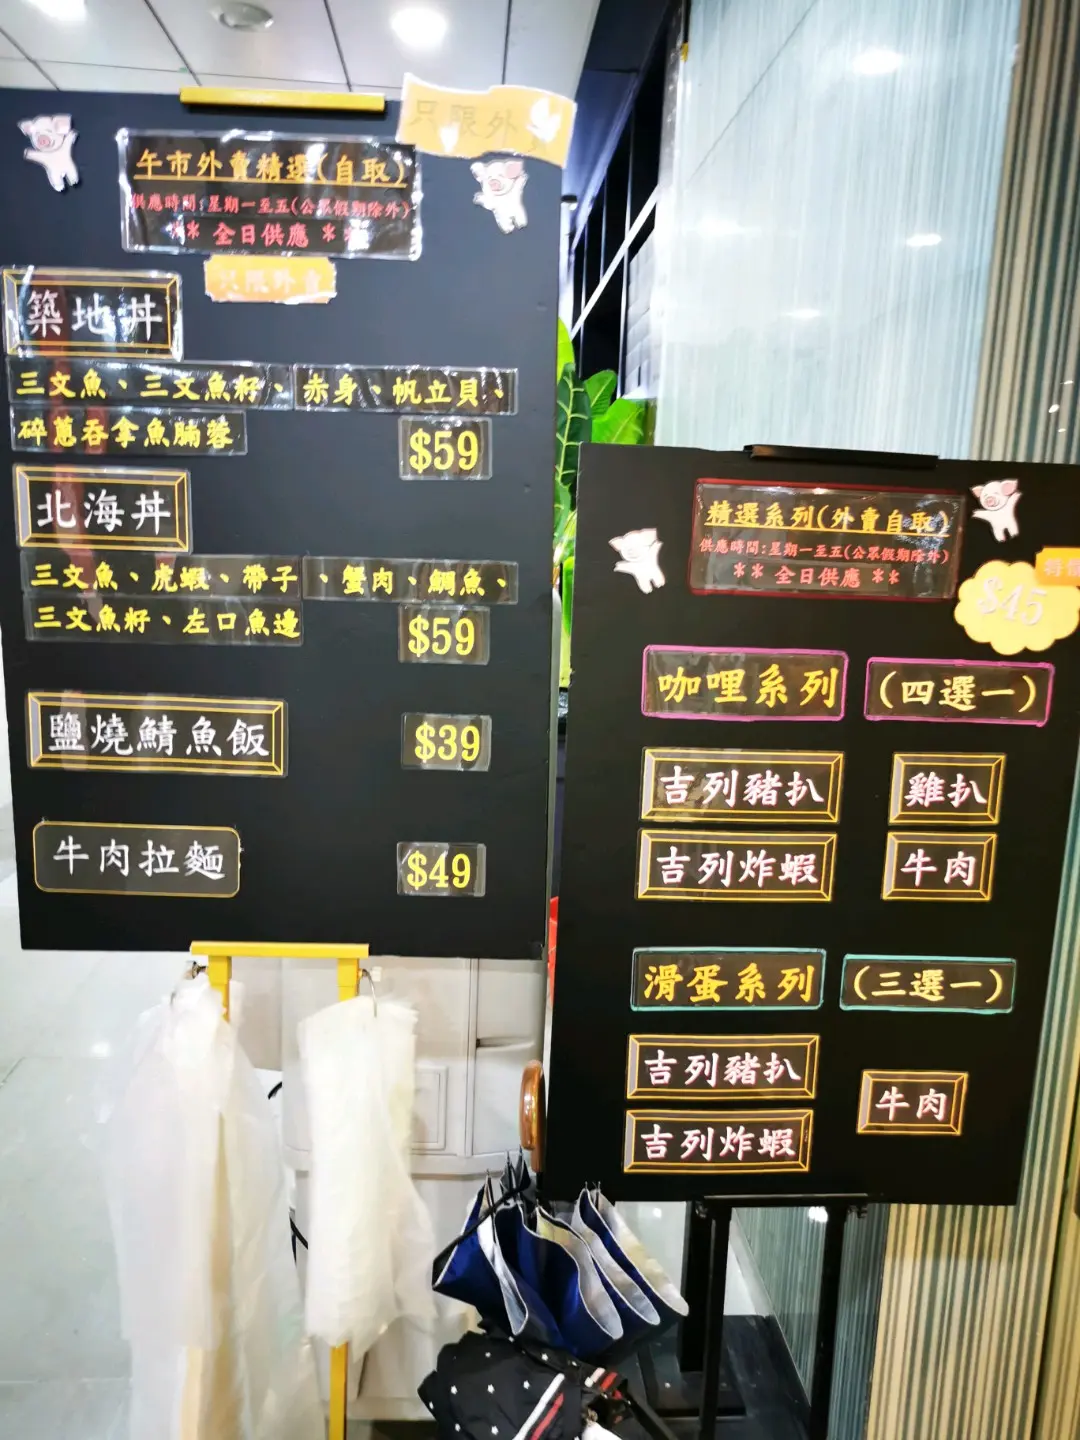 只限外
午市外賣精選(自取)
供應時間:星期一至五(公眾假期除外)
** 全日供應 **
只限外賣
築地丼
三文魚、三文魚籽、赤身、帆立貝、
碎蔥吞拿魚腩蓉
$59
北海丼
三文魚、虎蝦、帶子、蟹肉、鯛魚、
三文魚籽、左口魚邊
$59
鹽燒鯖魚飯
$39
牛肉拉麵
$49
精選系列(外賣自取)
供應時間:星期一至五(公眾假期除外)
** 全日供應 **
特價
$45
咖哩系列 (四選一)
吉列豬扒 雞扒
吉列炸蝦 牛肉
滑蛋系列 (三選一)
吉列豬扒
牛肉
吉列炸蝦